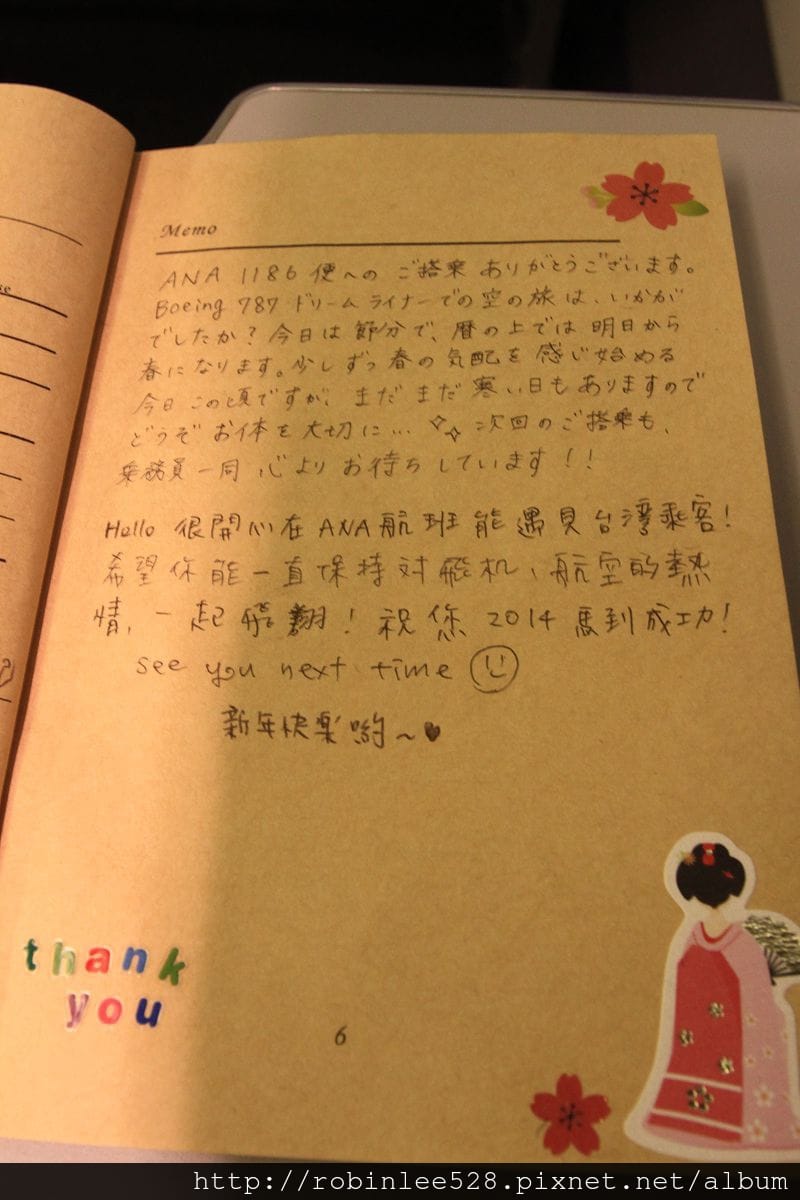 Memo
ANA 1186 便への ご搭乗 ありがとうございます。
Boeing 787 ドリームライナーでの空の旅は、いかが
でしたか?今日は節分で、暦の上では明日から
春になります。少しずつ春の気配を感じ始める
今日この頃ですが、まだまだ寒い日もありますので
どうぞお体を大切に… 次回のご搭乗も、
乗務員一同 心よりお待ちしています!!
Hello 很開心在ANA航班能遇見台湾乘客!
希望你能一直保持対飛机、航空的熱
情,一起飛翔!祝您2014馬到成功!
see you next time
新年快楽喲~
thank
you
6
http://robinlee528.pixnet.net/album